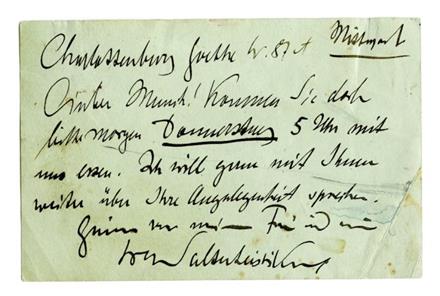 Charlottenburg Goethe str. 87 A Mittwoch
Guter Munch! Kommen Sie doch
bitte morgen Donnerstag 5 Uhr mit
uns essen. Ich will gern mit Ihnen
weiter über Ihre Angelegenheit sprechen.
von